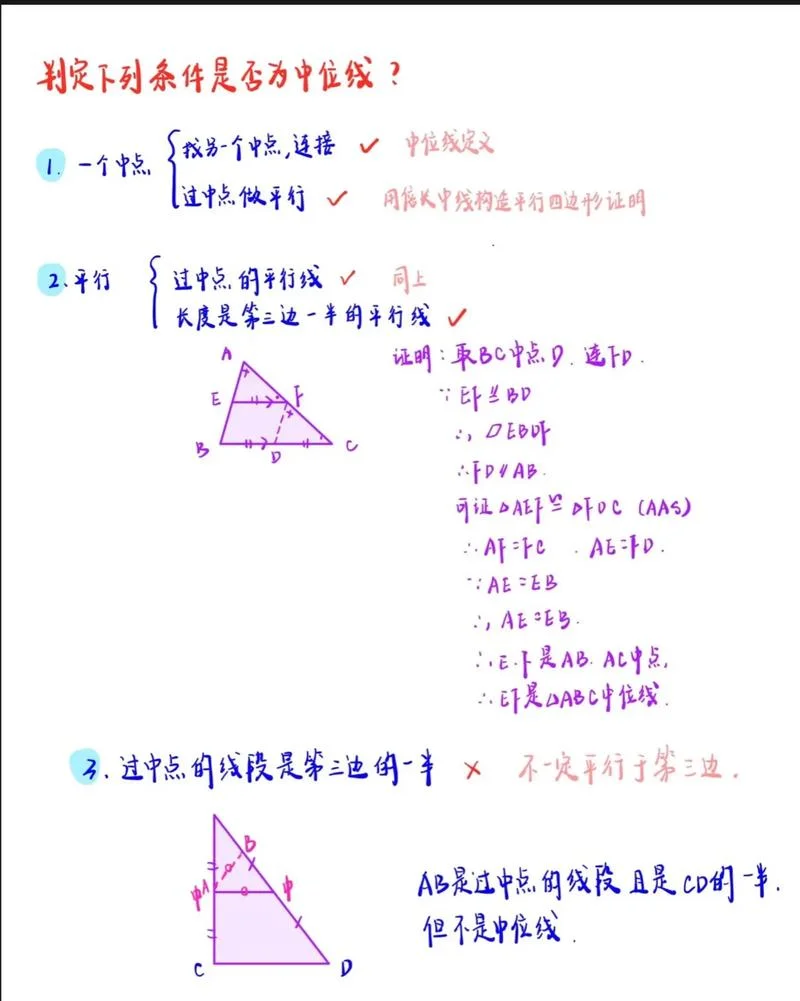 判定下列条件是否为中位线?
1. 一个中点
找另一个中点,连接 ✓ 中位线定义
过中点做平行 ✓ 用倍长中线构造平行四边形证明
2、平行
过中点的平行线 ✓ 同上
长度是第三边一半的平行线 ✓
A
E F
B D C
证明:取BC中点D.连FD.
∵EF⫽BD
∴,▱EBDF
∴FD∥AB.
可证△AEF≌△FDC(AAS)
∴AF=FC . AE=FD.
∵AE=EB
∴,AE=EB.
∴,E.F是AB.AC中点,
∴EF是△ABC中位线.
3.过中点的线段是第三边的一半 × 不一定平行于第三边.
B
中A 中
C D
AB是过中点的线段且是CD的一半.
但不是中位线.